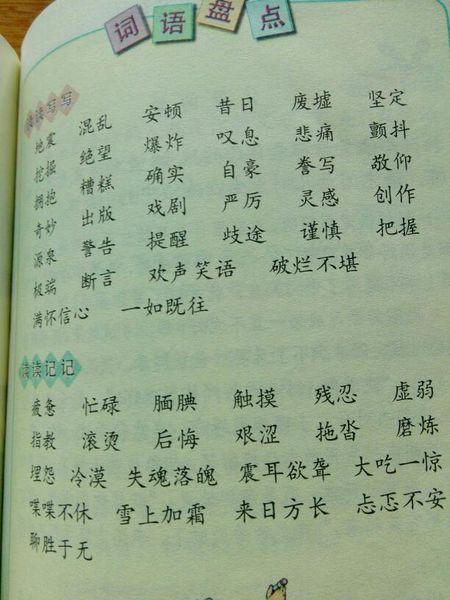 词语盘点
读读写写
地震 混乱 安顿 昔日 废墟 坚定
挖掘 绝望 爆炸 叹息 悲痛 颤抖
拥抱 糟糕 确实 自豪 誊写 敬仰
奇妙 出版 戏剧 严厉 灵感 创作
源泉 警告 提醒 歧途 谨慎 把握
极端 断言 欢声笑语 破烂不堪
满怀信心 一如既往
读读记记
疲惫 忙碌 腼腆 触摸 残忍 虚弱
指教 滚烫 后悔 艰涩 拖沓 磨炼
埋怨 冷漠 失魂落魄 震耳欲聋 大吃一惊
喋喋不休 雪上加霜 来日方长 忐忑不安
聊胜于无